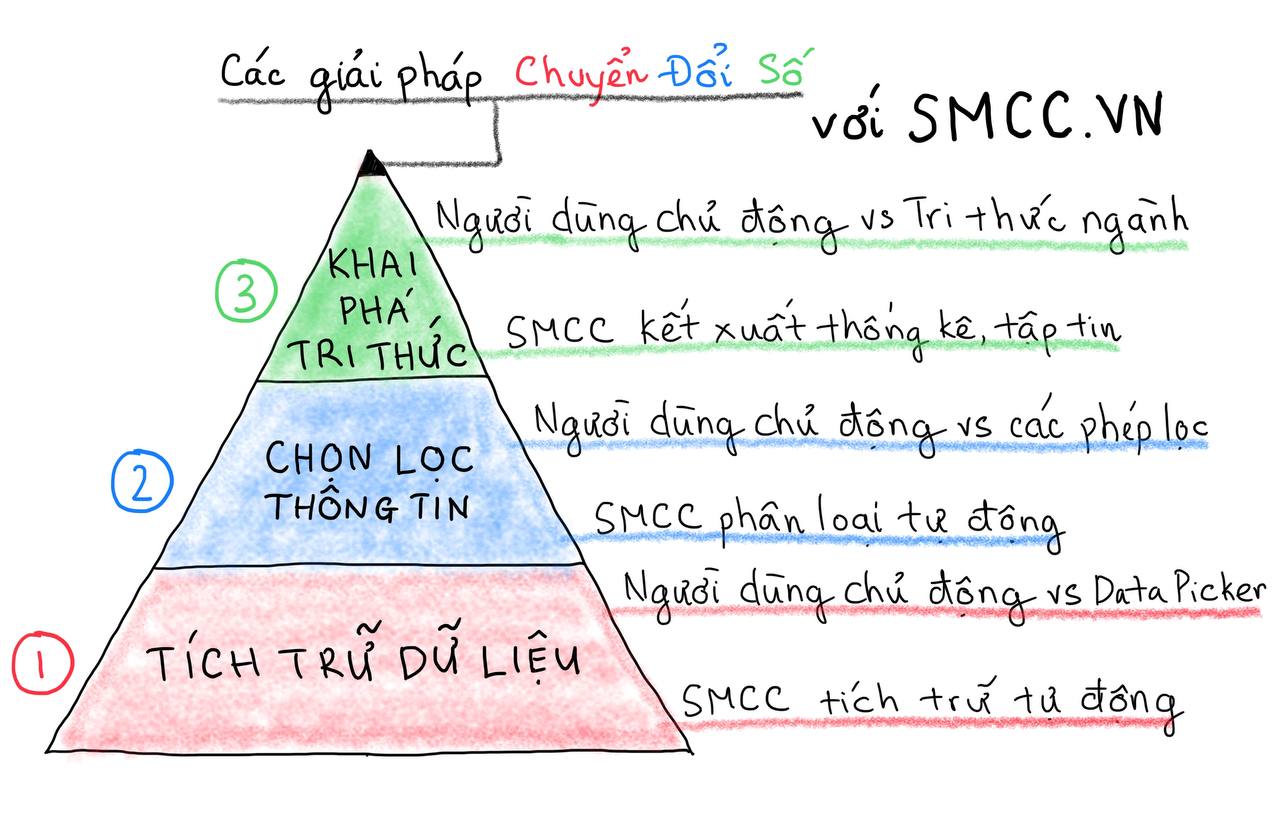 Các giải pháp Chuyển Đổi Số
với SMCC.VN
Người dùng chủ động vs Tri thức ngành
3
KHAI
PHÁ
TRI THỨC
SMCC kết xuất thống kê, tập tin
Người dùng chủ động vs các phép lọc
2
CHỌN LỌC
THÔNG TIN
SMCC phân loại tự động
Người dùng chủ động vs Data Picker
1
TÍCH TRỮ DỮ LIỆU
SMCC tích trữ tự động